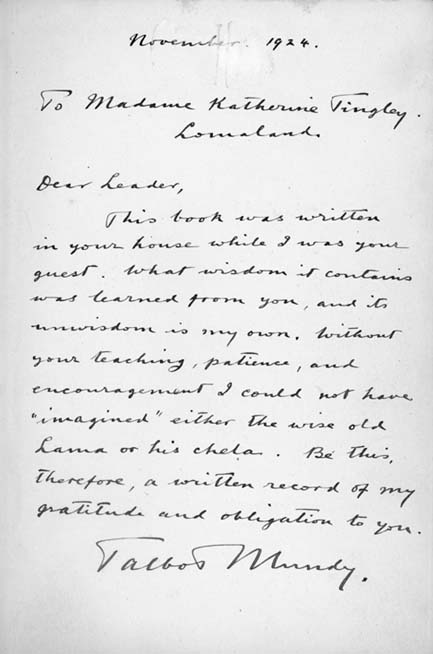 November. 1924.
To Madame Katherine Tingley.
Lomaland.
Dear Leader,
This book was written
in your house while I was your
guest. What wisdom it contains
was learned from you, and its
unwisdom is my own. Without
your teaching, patience, and
encouragement I could not have
"imagined" either the wise old
Lama or his chela. Be this,
therefore, a written record of my
gratitude and obligation to you.
Talbot Mundy.